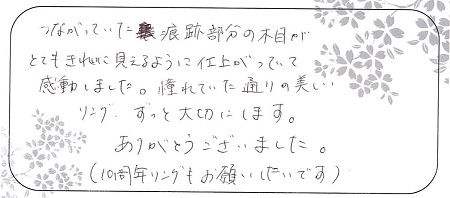 つながっていた痕跡部分の木目が
とてもきれいに見えるように仕上がっていて
感動しました。憧れていた通りの美しい
リング、ずっと大切にします。
ありがとうございました。
(10周年リングもお願いしたいです)